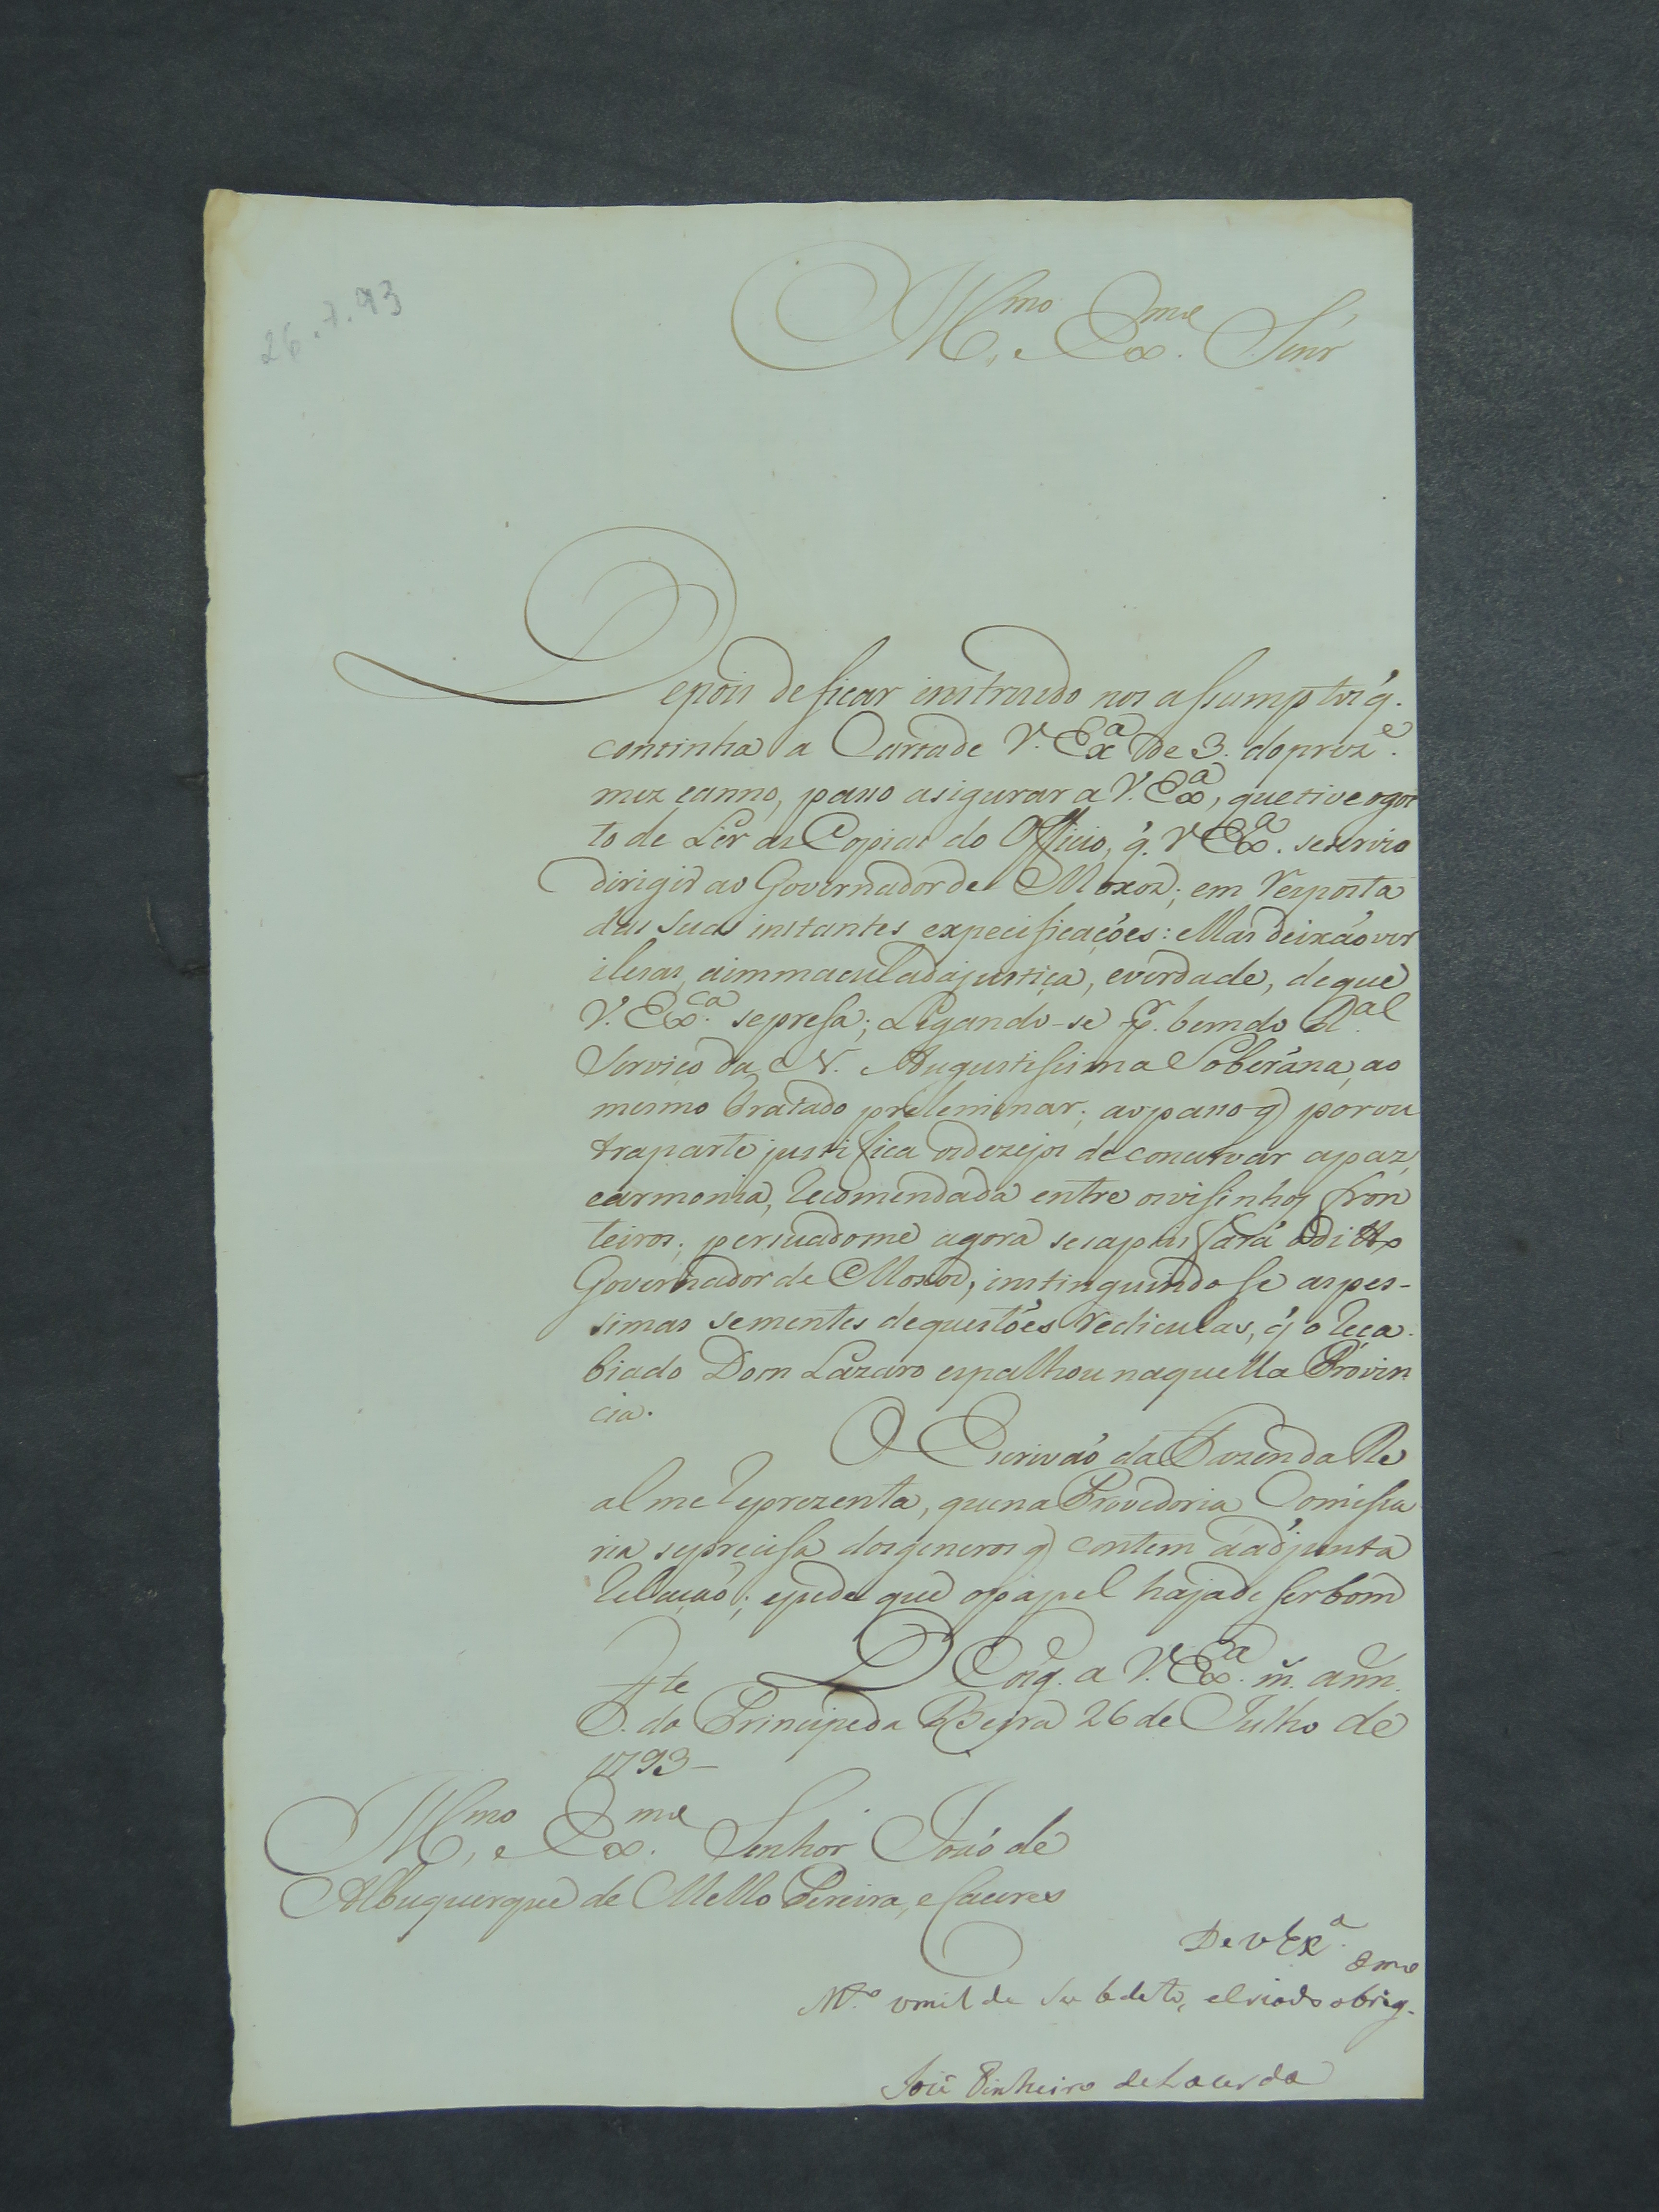 26.7.93
Ill.mo, e Ex.mo Senr
Depois de ficar instruido nos assumptos q.
continha a Carta de V. Exa de 3. do prez.e
mez e anno, passo asigurar a V. Exa, que tive o gos
to de Ler as Copias do Officio, q. V Exa. se servio
dirigir ao Governador de Moxos; em resposta
das suas instantes expecificações: Mas deixão ver
ilesas, a immaculada justiça, e verdade, de que
V. Ex.ca se presa; Ligando-se p.r bem do R.al
Serviço da N. Augustissima Soberâna, ao
mesmo tratado prelemenar; ao passo q por ou
tra parte justifica os dezejos de conservar a paz,
e armonia, recomendada entre os visinhos fron
teiros; persuadome agora se sapasifará o ditto
Governador de Moxos, instinguindo se as pes-
simas sementes de questões rediculas, q o reca
biado Dom Lázaro espalhou naquella Provin
cia.
O Escrivão da Fazenda Re
al me reprezenta, que na Provedoria Comissa
ria se precisa dos generos q contem a adjunta
relação; e pede que o papel haja de ser bom
D.s G.e a V. Exa. m. ann.
F.te do Principe da Beyra 26 de Julho de
1793-
Ill.mo, e Ex.mo Senhor João de
Albuquerque de Mello Pereira, e Caceres
De V Ex.a
M.to umilde Subdeto, e criado obrig.mo
José Pinheiro de Lacerda